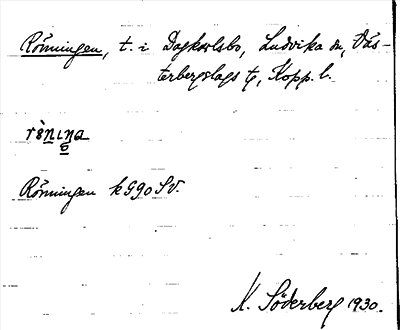 Rönningen, t. i Dagkarlsbo, Ludvika sn, Väs-
terbergslags tg, Kopp. l.
rö̀nɩṇa
Rönningen k G90 SV.
K. Söderberg 1930.